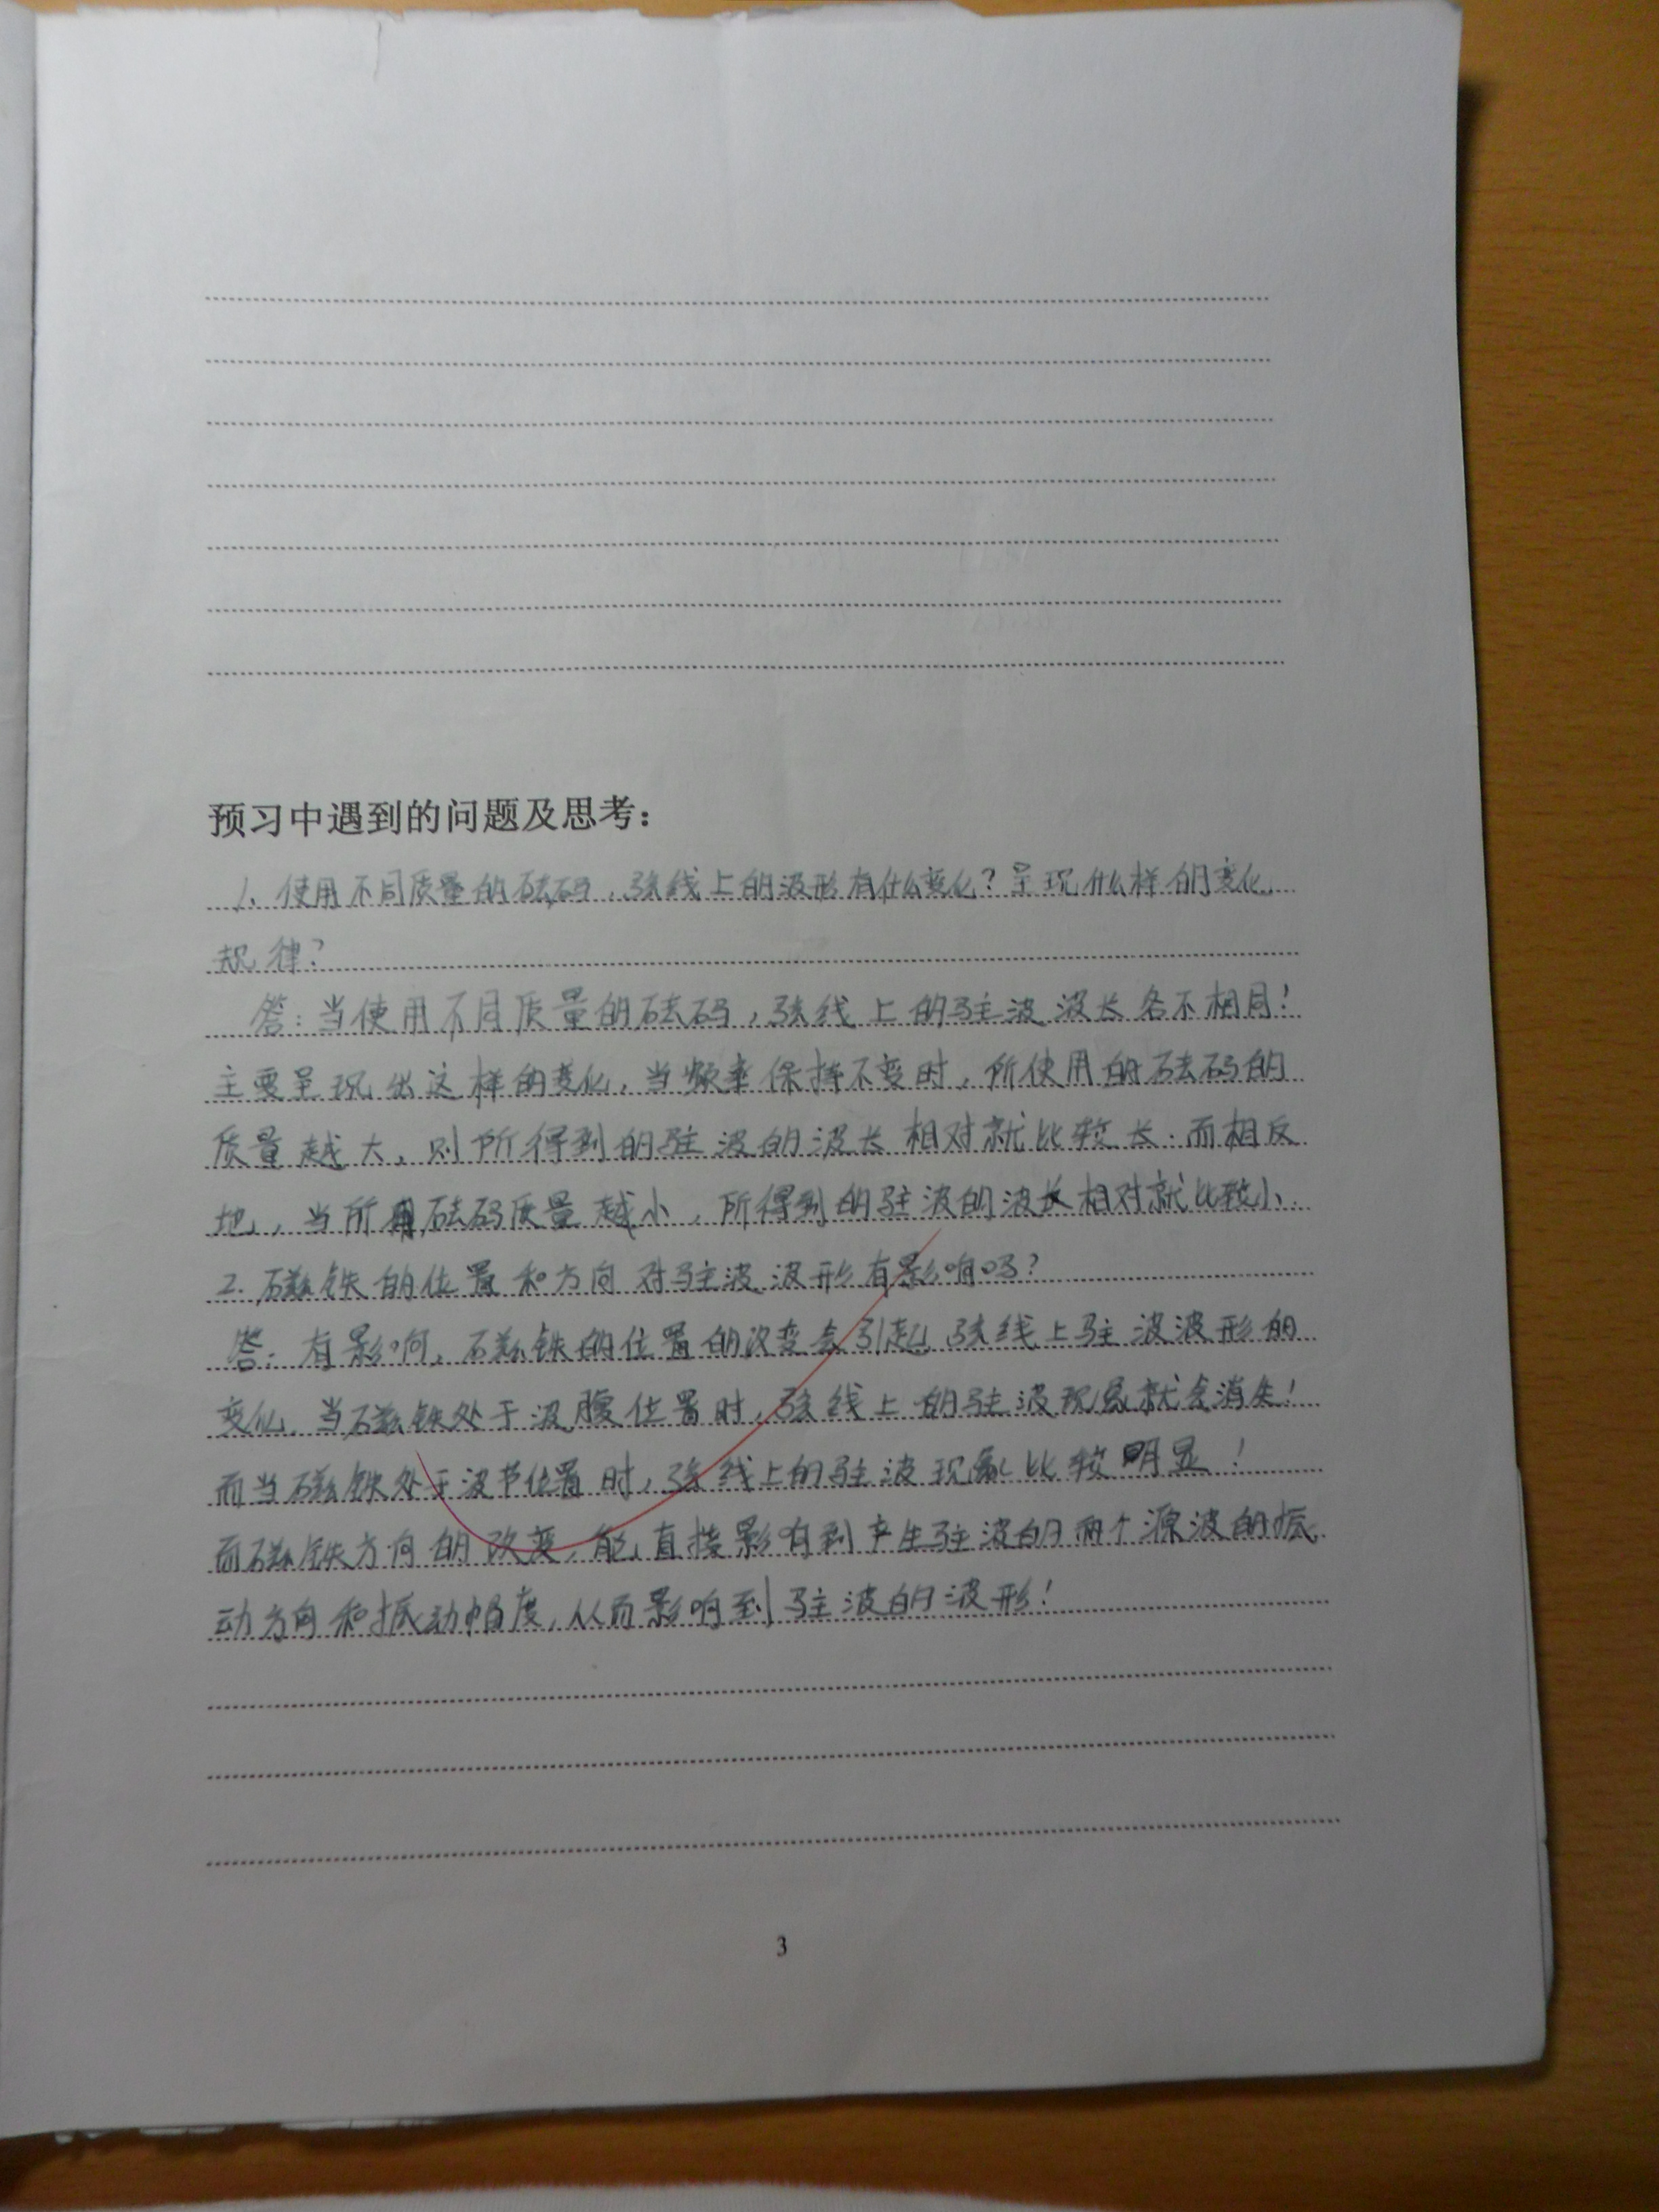 预习中遇到的问题及思考：
1、使用不同质量的砝码，弦线上的波形有什么变化？呈现什么样的变化
规律？
答：当使用不同质量的砝码，弦线上的驻波波长各不相同！
主要呈现出这样的变化，当频率保持不变时，所使用的砝码的
质量越大，则所得到的驻波的波长相对就比较长．而相反
地，当所用砝码质量越小，所得到的驻波的波长相对就比较小．
2.磁铁的位置和方向对驻波波形有影响吗？
答：有影响，磁铁的位置的改变会引起弦线上驻波波形的
变化，当磁铁处于波腹位置时，弦线上的驻波现象就会消失！
而当磁铁处于波节位置时，弦线上的驻波现象比较明显！
而磁铁方向的改变，能直接影响到产生驻波的两个源波的振
动方向和振动幅度，从而影响到驻波的波形！
3